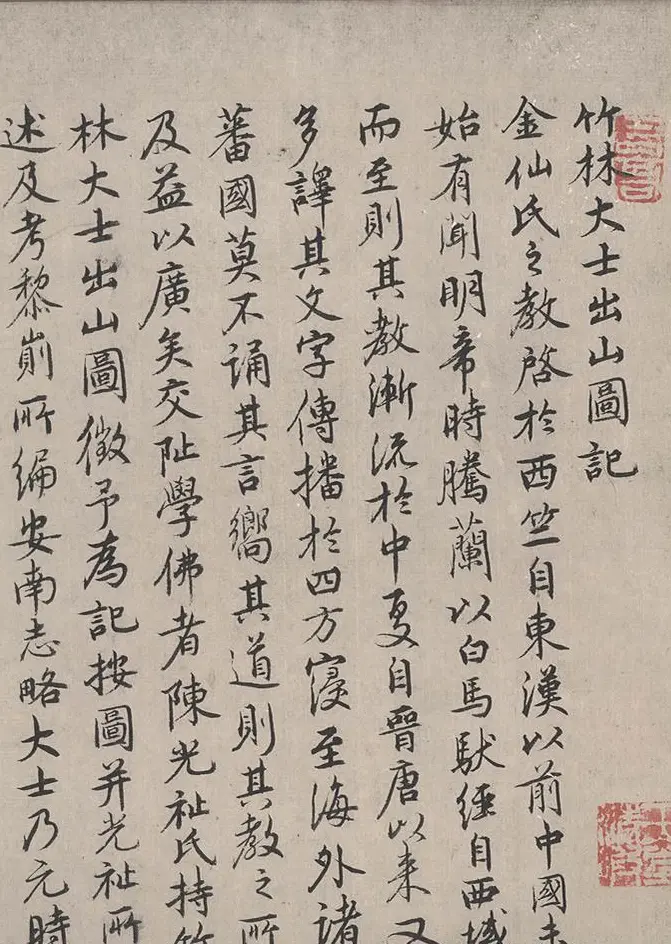 竹林大士出山圖記
金仙氏之教啓於西竺自東漢以前中國未
始有聞明帝時騰蘭以白馬馱經自西域
而至則其教漸流於中夏自晉唐以来又
多譯其文字傳播於四方寖至海外諸
蕃國莫不誦其言嚮其道則其教之所
及益以廣矣交阯學佛者陳光祉氏持竹
林大士出山圖徵予為記按圖并光祉所
述及考黎崱所編安南志略大士乃元時